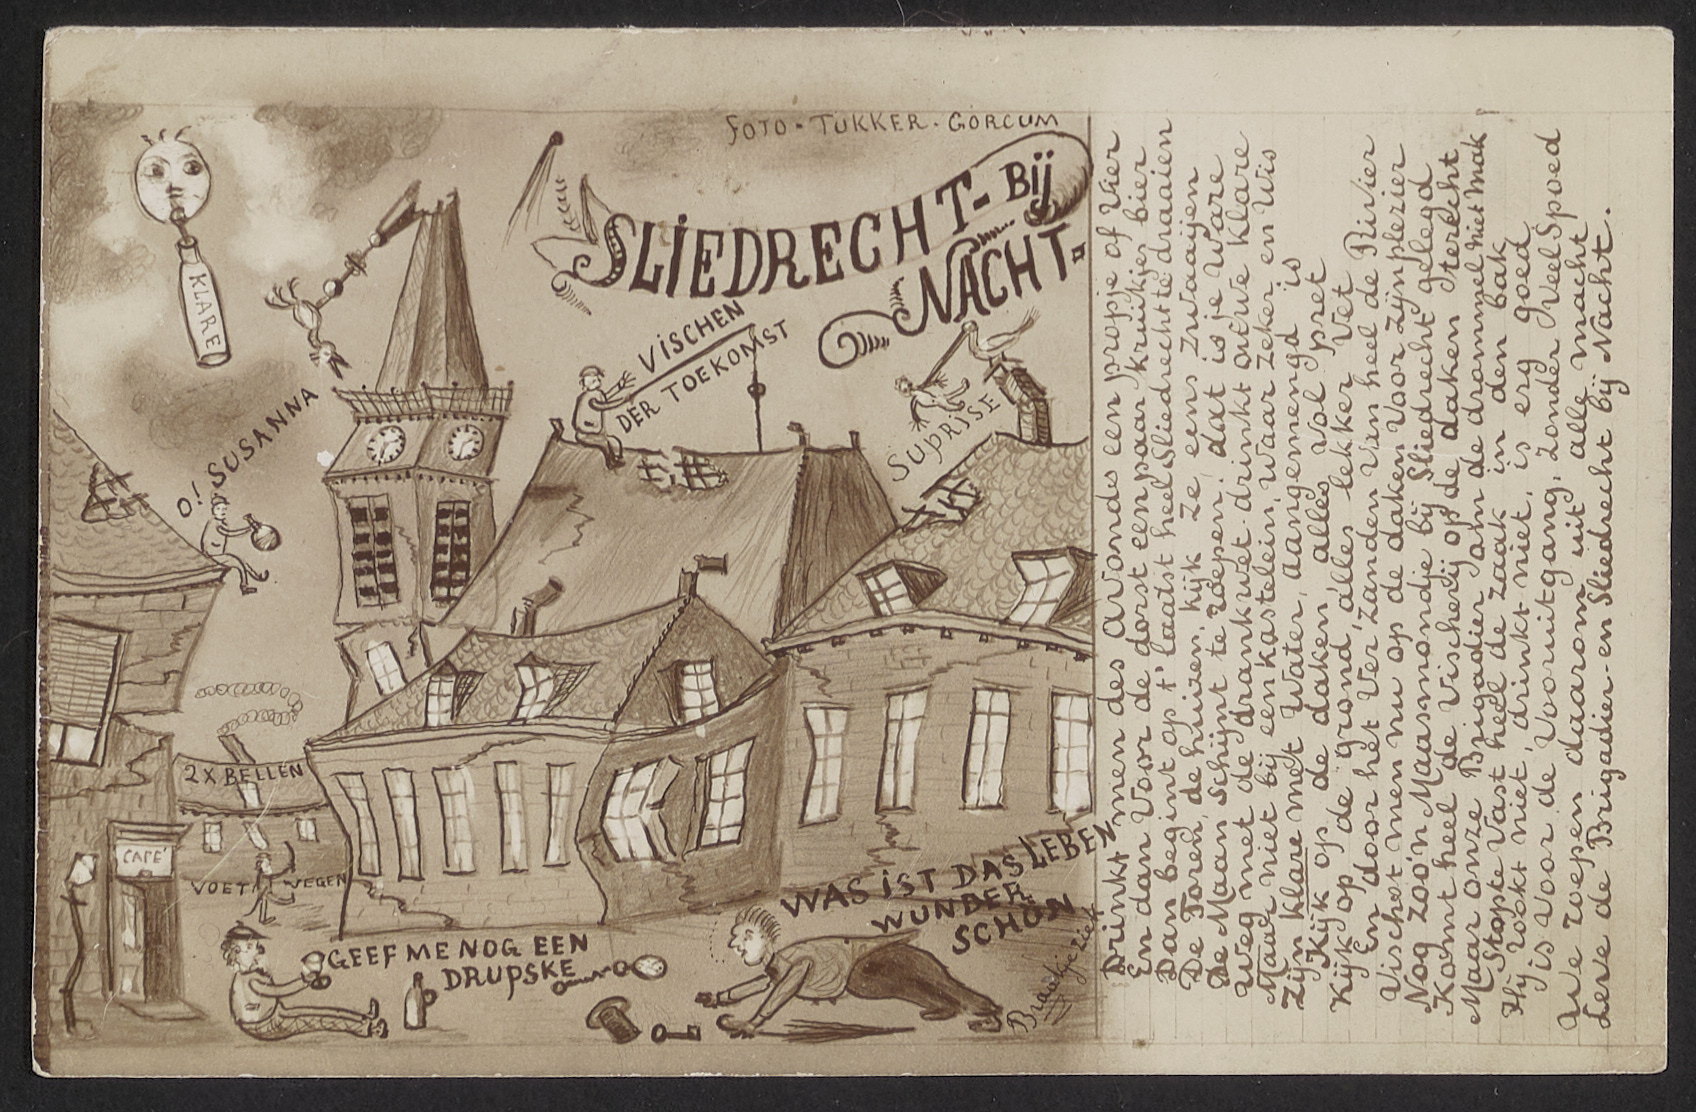 FOTO - TUKKER - GORCUM
SLIEDRECHT - Bij
NACHT.
KLARE
O! SUSANNA
VISCHEN
DER TOEKOMST
SUPRISE
2 X BELLEN
CAFÉ
VOET VEGEN
GEEF ME NOG EEN
DRUPSKE
WAS IST DAS LEBEN
WUNDER
SCHÖN
Drinkt men des avonds een propje of vier
En dan voor de dorst een paar kruikjes bier
Dan begint op t' laatst heel Sliedrecht te draaien
De Toren, de huizen, kijk ze eens zwaaijen
De Maan schijnt te roepen, dat is je ware
Weg met de drankwet drinkt ouwe klare
Maar niet bij een kastelein, waar zeker en wis
Zijn klare met water, aangemengd is
Kijk op de daken, alles vol pret
Kijk op de grond, alles lekker vet
En door het ver zanden van heel de Rivier
Vischet men nu op de daken voor zijn plezier
Nog zoo'n Maasmondje bij Sliedrecht gelegd
Komt heel de Visscherij op de daken terecht
Maar onze Brigadier Jahn de drommel niet mak
Stopte vast heel de zaak in den bak
Hij rookt niet, drinkt niet, is erg goed
Is voor de vooruitgang, zonder veel spoed
We roepen daarom uit alle macht
Leve de Brigadier - en Sliedrecht bij Nacht.